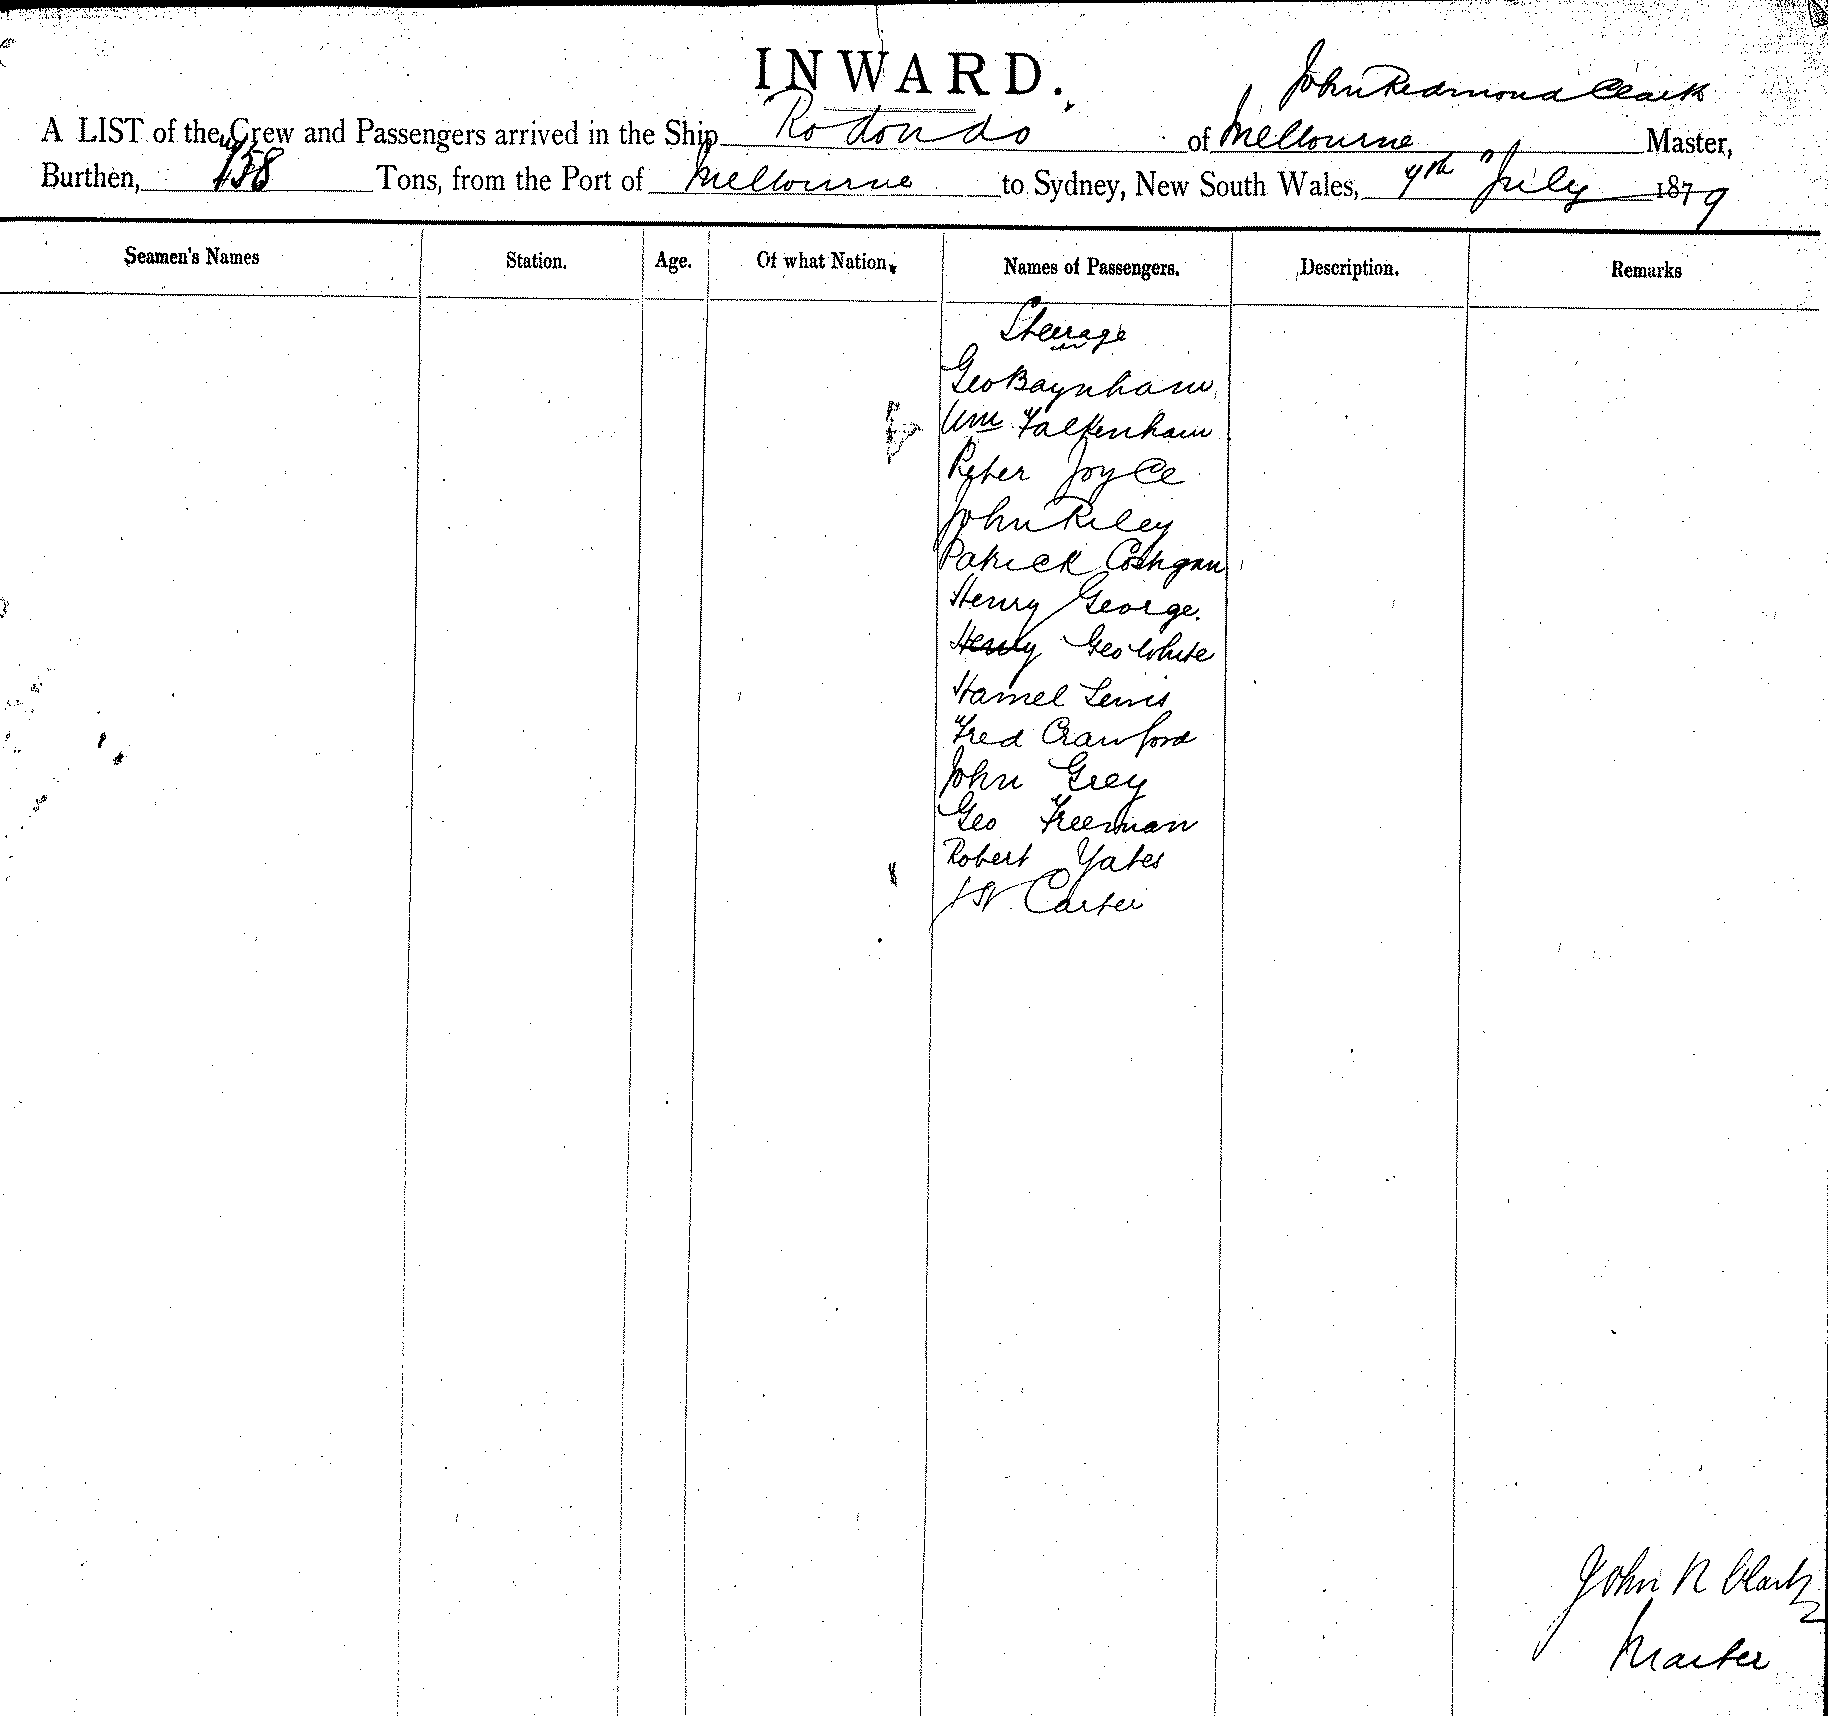 INWARD.
John Redmond Clark
A LIST of the Crew and Passengers arrived in the Ship Rodondo of Melbourne Master,
Burthen, Tons, from the Port of Melbourne to Sydney, New South Wales, 4th July 1879
Seamen's Names Station. Age. Of what Nation. Names of Passengers. Description. Remarks
Steerage
Geo Baynham
Wm Falkenham
Peter Joyce
John Riley
Patrick Costigan
Henry George.
Henry Geo White
Hamel Lewis
Fred Crawford
John Grey
Geo Freeman
Robert Yates
Carter
John R Clark
Master